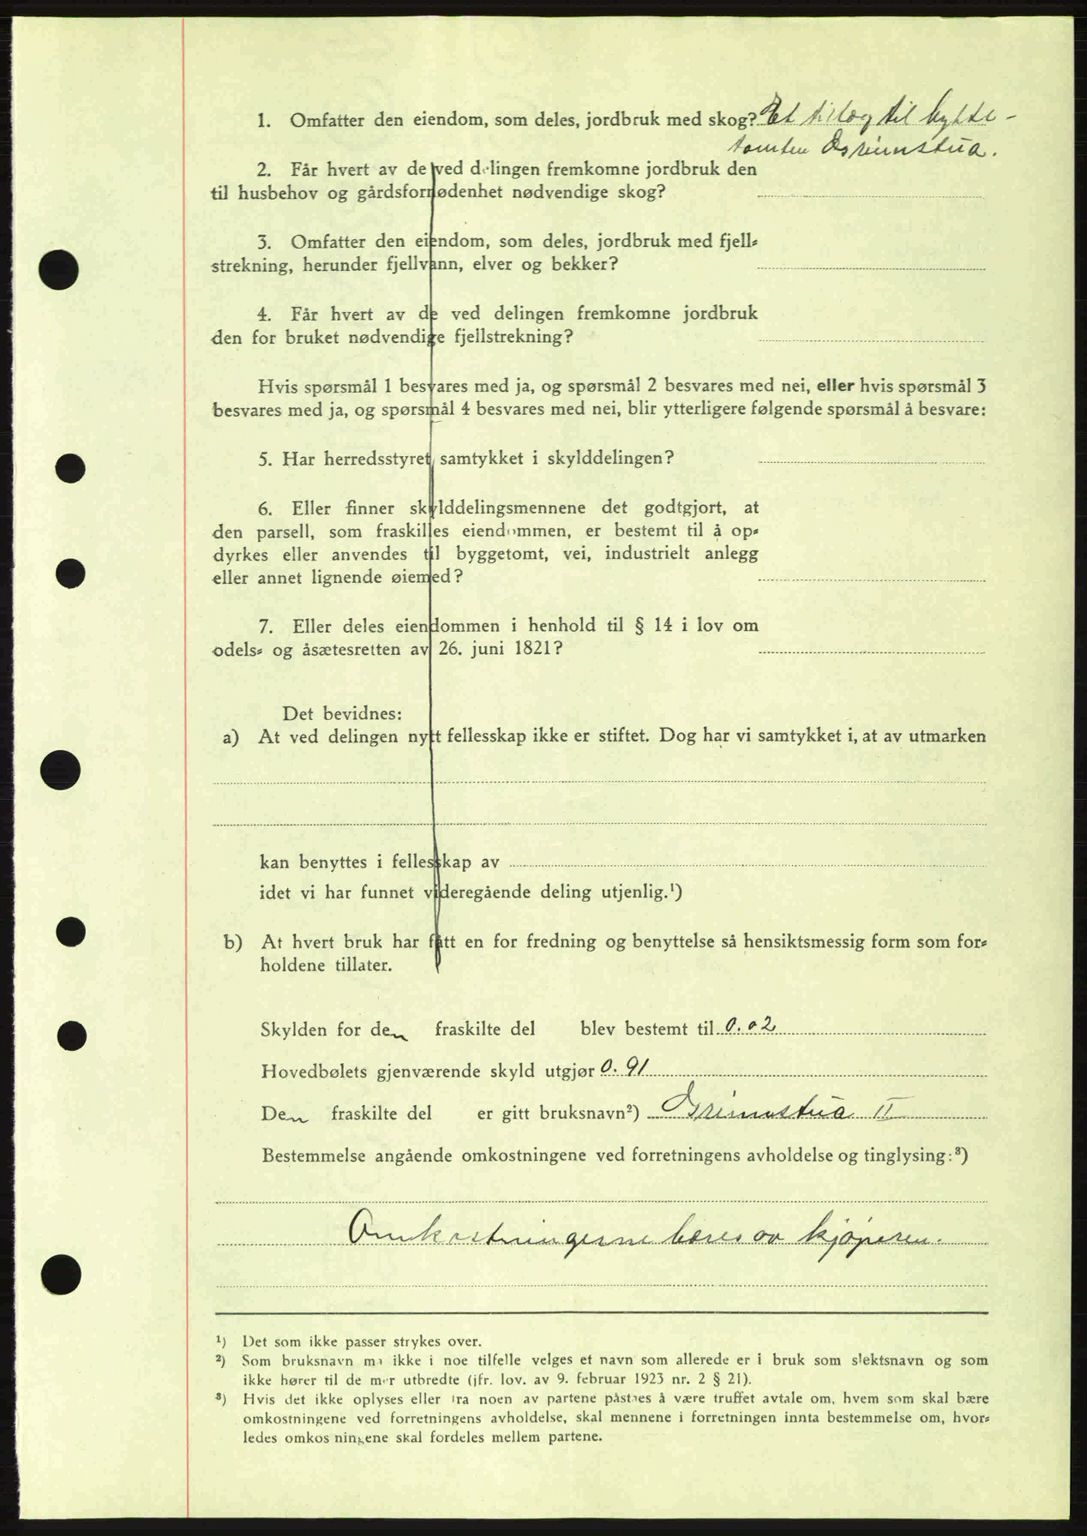 1. Omfatter den eiendom, som deles, jordbruk med skog? Et tillæg til hytte-
tomten Grimstua.
2. Får hvert av de ved delingen fremkomne jordbruk den
til husbehov og gårdsfornødenhet nødvendige skog?
3. Omfatter den eiendom, som deles, jordbruk med fjell-
strekning, herunder fjellvann, elver og bekker?
4. Får hvert av de ved delingen fremkomne jordbruk
den for bruket nødvendige fjellstrekning?
Hvis spørsmål 1 besvares med ja, og spørsmål 2 besvares med nei, eller hvis spørsmål 3
besvares med ja, og spørsmål 4 besvares med nei, blir ytterligere følgende spørsmål å besvare:
5. Har herredsstyret samtykket i skylddelingen?
6. Eller finner skylddelingsmennene det godtgjort, at
den parsell, som fraskilles eiendommen, er bestemt til å op-
dyrkes eller anvendes til byggetomt, vei, industrielt anlegg
eller annet lignende øiemed?
7. Eller deles eiendommen i henhold til § 14 i lov om
odels- og åsætesretten av 26. juni 1821?
Det bevidnes:
a) At ved delingen nytt fellesskap ikke er stiftet. Dog har vi samtykket i, at av utmarken
kan benyttes i fellesskap av
idet vi har funnet videregående deling utjenlig.¹)
b) At hvert bruk har fått en for fredning og benyttelse så hensiktsmessig form som for-
holdene tillater.
Skylden for den fraskilte del blev bestemt til 0.02
Hovedbølets gjenværende skyld utgjør 0.91
Den fraskilte del er gitt bruksnavn²) Grimstua II
Bestemmelse angående omkostningene ved forretningens avholdelse og tinglysing:³)
Omkostningerne bæres av kjøperen.
¹) Det som ikke passer strykes over.
²) Som bruksnavn må ikke i noe tilfelle velges et navn som allerede er i bruk som slektsnavn og som
ikke hører til de mer utbredte (jfr. lov. av 9. februar 1923 nr. 2 § 21).
³) Hvis det ikke oplyses eller fra noen av partene påståes å være truffet avtale om, hvem som skal bære
omkostningene ved forretningens avholdelse, skal mennene i forretningen innta bestemmelse om, hvor-
ledes omkostningene skal fordeles mellem partene.